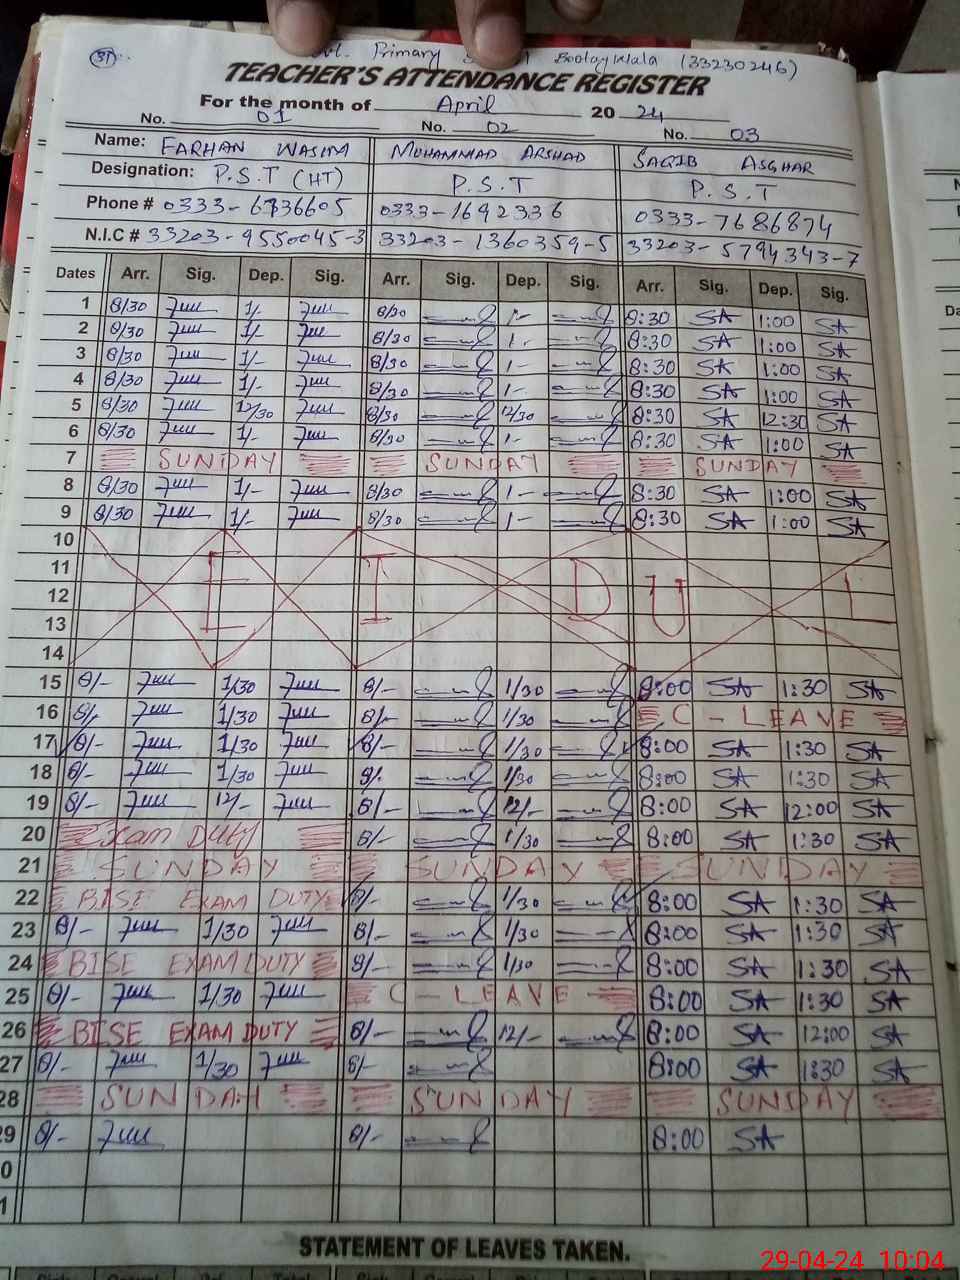 31
Primary Boolaywala (33230246)
TEACHER'S ATTENDANCE REGISTER
For the month of April 20 24
No. 01 No. 02 No. 03
Name: FARHAN WASIM MUHAMMAD ARSHAD SAQIB ASGHAR
Designation: P.S.T (HT) P.S.T P.S.T
Phone # 0333-6736605 0333-1692336 0333-7686874
N.I.C # 33203-9550045-3 33203-1360359-5 33203-5794343-7
Dates Arr. Sig. Dep. Sig. Arr. Sig. Dep. Sig. Arr. Sig. Dep. Sig.
1 8/30 1/- 8/30 1- 8:30 SA 1:00 SA
2 8/30 1/- 8/30 1- 8:30 SA 1:00 SA
3 8/30 1/- 8/30 1- 8:30 SA 1:00 SA
4 8/30 1/- 8/30 1- 8:30 SA 1:00 SA
5 8/30 12/30 8/30 12/30 8:30 SA 12:30 SA
6 8/30 1/- 8/30 1- 8:30 SA 1:00 SA
7 SUNDAY SUNDAY SUNDAY
8 8/30 1/- 8/30 1- 8:30 SA 1:00 SA
9 8/30 1/- 8/30 1- 8:30 SA 1:00 SA
10
11
12 E I D U L
13
14
15 8/- 1/30 8/- 1/30 8:00 SA 1:30 SA
16 8/- 1/30 8/- 1/30 C-LEAVE
17 8/- 1/30 8/- 1/30 8:00 SA 1:30 SA
18 8/- 1/30 8/- 1/30 8:00 SA 1:30 SA
19 8/- 12/- 8/- 12/- 8:00 SA 12:00 SA
20 Exam DUTY 8/- 1/30 8:00 SA 1:30 SA
21 SUNDAY SUNDAY SUNDAY
22 BISE EXAM DUTY 8/- 1/30 8:00 SA 1:30 SA
23 8/- 1/30 8/- 1/30 8:00 SA 1:30 SA
24 BISE EXAM DUTY 8/- 1/30 8:00 SA 1:30 SA
25 8/- 1/30 C-LEAVE 8:00 SA 1:30 SA
26 BISE EXAM DUTY 8/- 12/- 8:00 SA 12:00 SA
27 8/- 1/30 8/- 8:00 SA 1:30 SA
28 SUNDAY SUNDAY SUNDAY
29 8/- 8/- 8:00 SA
0
1
STATEMENT OF LEAVES TAKEN.
29-04-24 10:04